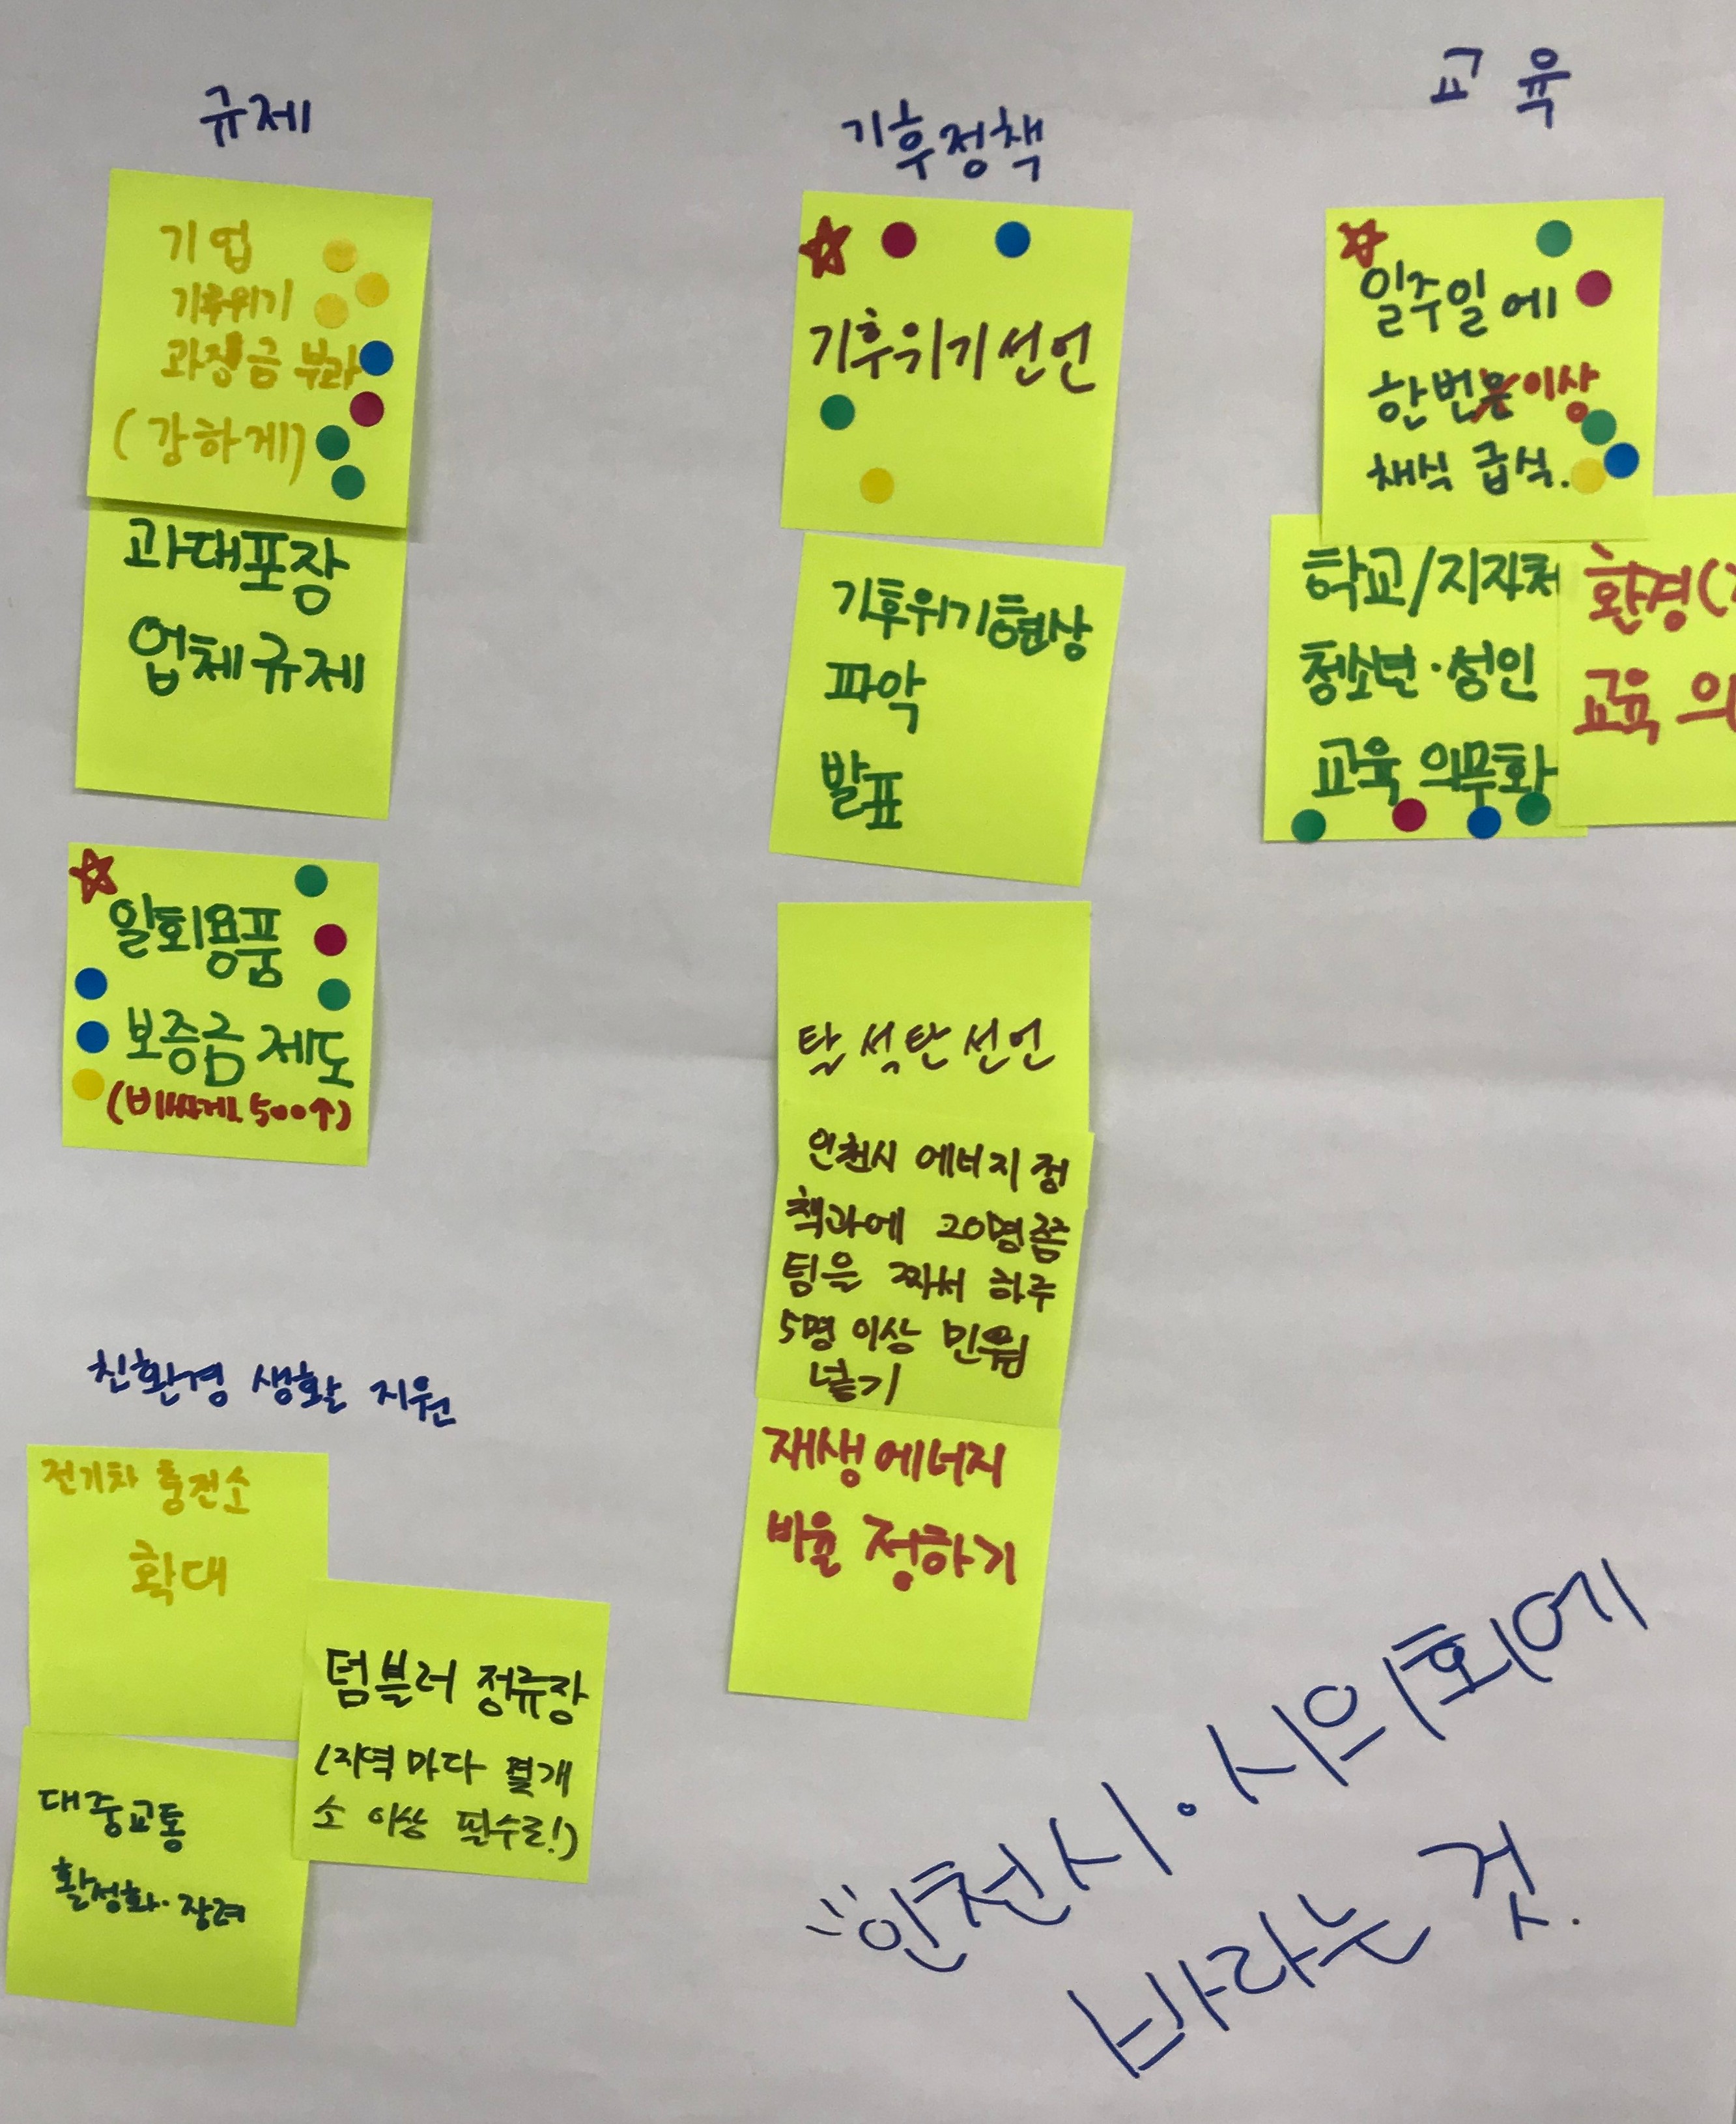 규제
기업
기후위기
과징금 부과
(강하게)
과대포장
업체규제
일회용품
보증금 제도
(비싸게. 500↑)
친환경 생활 지원
전기차 충전소
확대
텀블러 정류장
(지역마다 몇개
소 이상 필수로!)
대중교통
활성화·장려
기후정책
기후위기선언
기후위기현상
파악
발표
탈석탄선언
인천시 에너지정
책과에 20명쯤
팀을 짜서 하루
5명 이상 민원
넣기
재생에너지
비율 정하기
교육
일주일에
한번 이상
채식 급식.
학교/지자체
청소년·성인
교육 의무화
환경(
교육 의
인천시·시의회에
바라는 것.